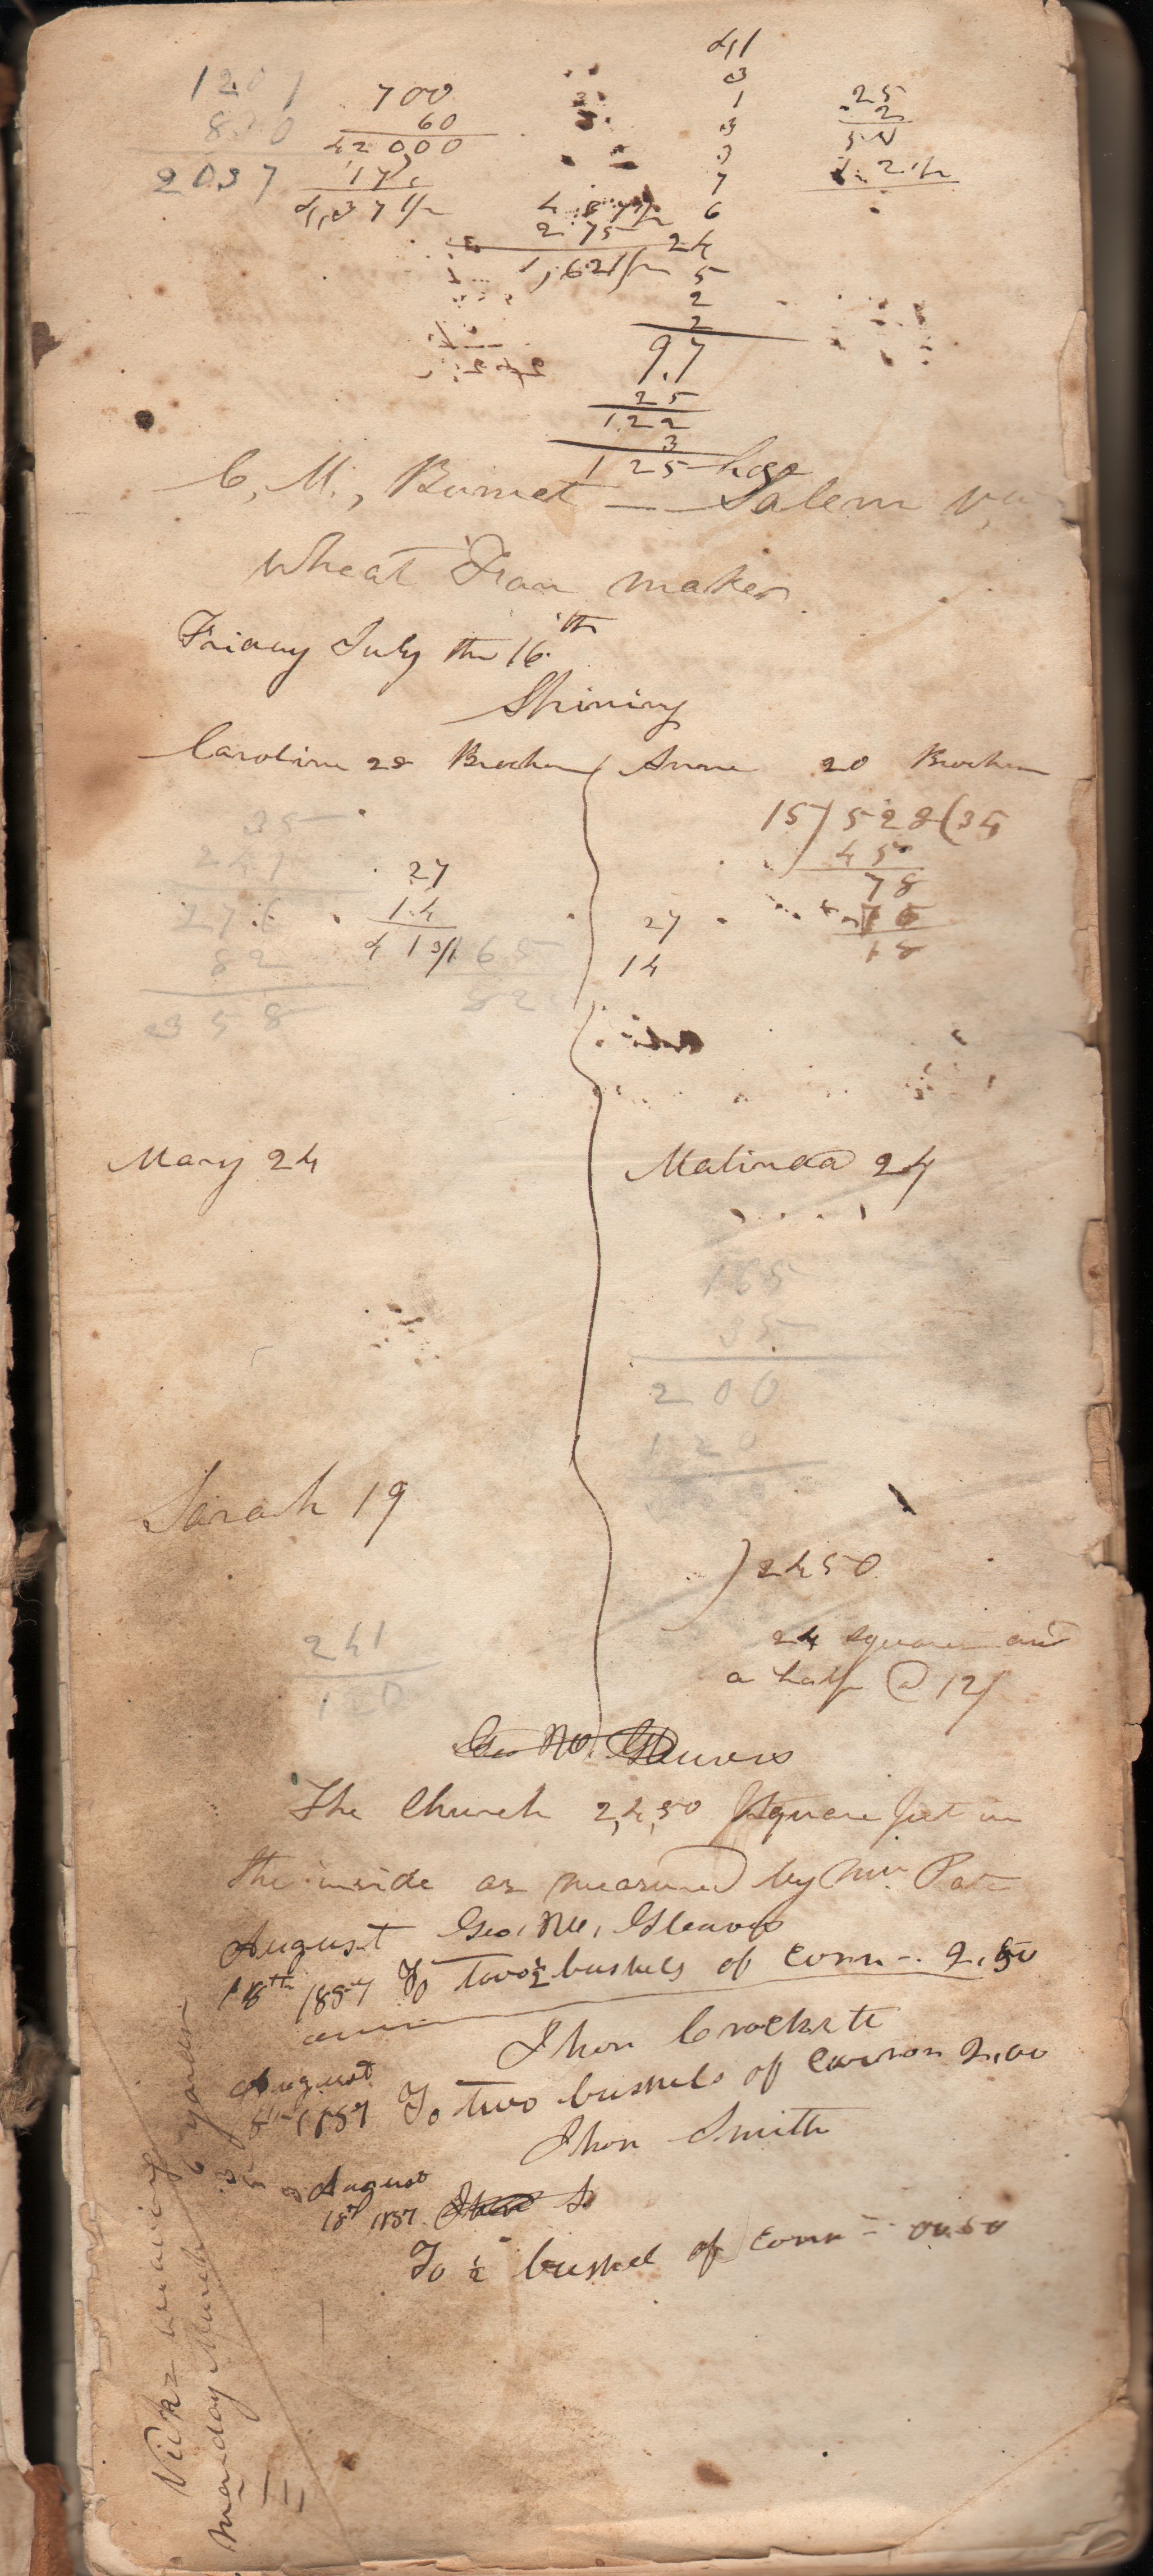 41
3
1
3
3
7
6
24
5
2
2
97
25
122
3
125 hogs
1201
830
2037
700
60
42000
175
4,37 1/2
275
1,62 1/2
25
2
50
C. M., Burnet — Salem Va
Wheat Fan maker
Friday July the 16th
Spining
Caroline 28 Broches
Anne 20 Broches
15)528(35
45
78
75
18
35
241
276
82
358
27
14
41
65
82
27
14
Mary 24
Malinda 24
165
35
200
120
Sarah 19
)2450
24 squares and
a half @ 12/
241
120
Geo. W. Gleaves
The Church 2,4,50 Square feet in
the inside as measured by Mr. Pate
August Geo. W. Gleaves
18th 1857 To two 1/2 bushels of Corn -. 2.50
Jhon Crockett
August
1857 To two bushels of 2.00
Jhon Smith
August
18th 1857. To
To 1/2 bushel of Corn = 00.50
weaving
monday March 6 yards
3
5
3